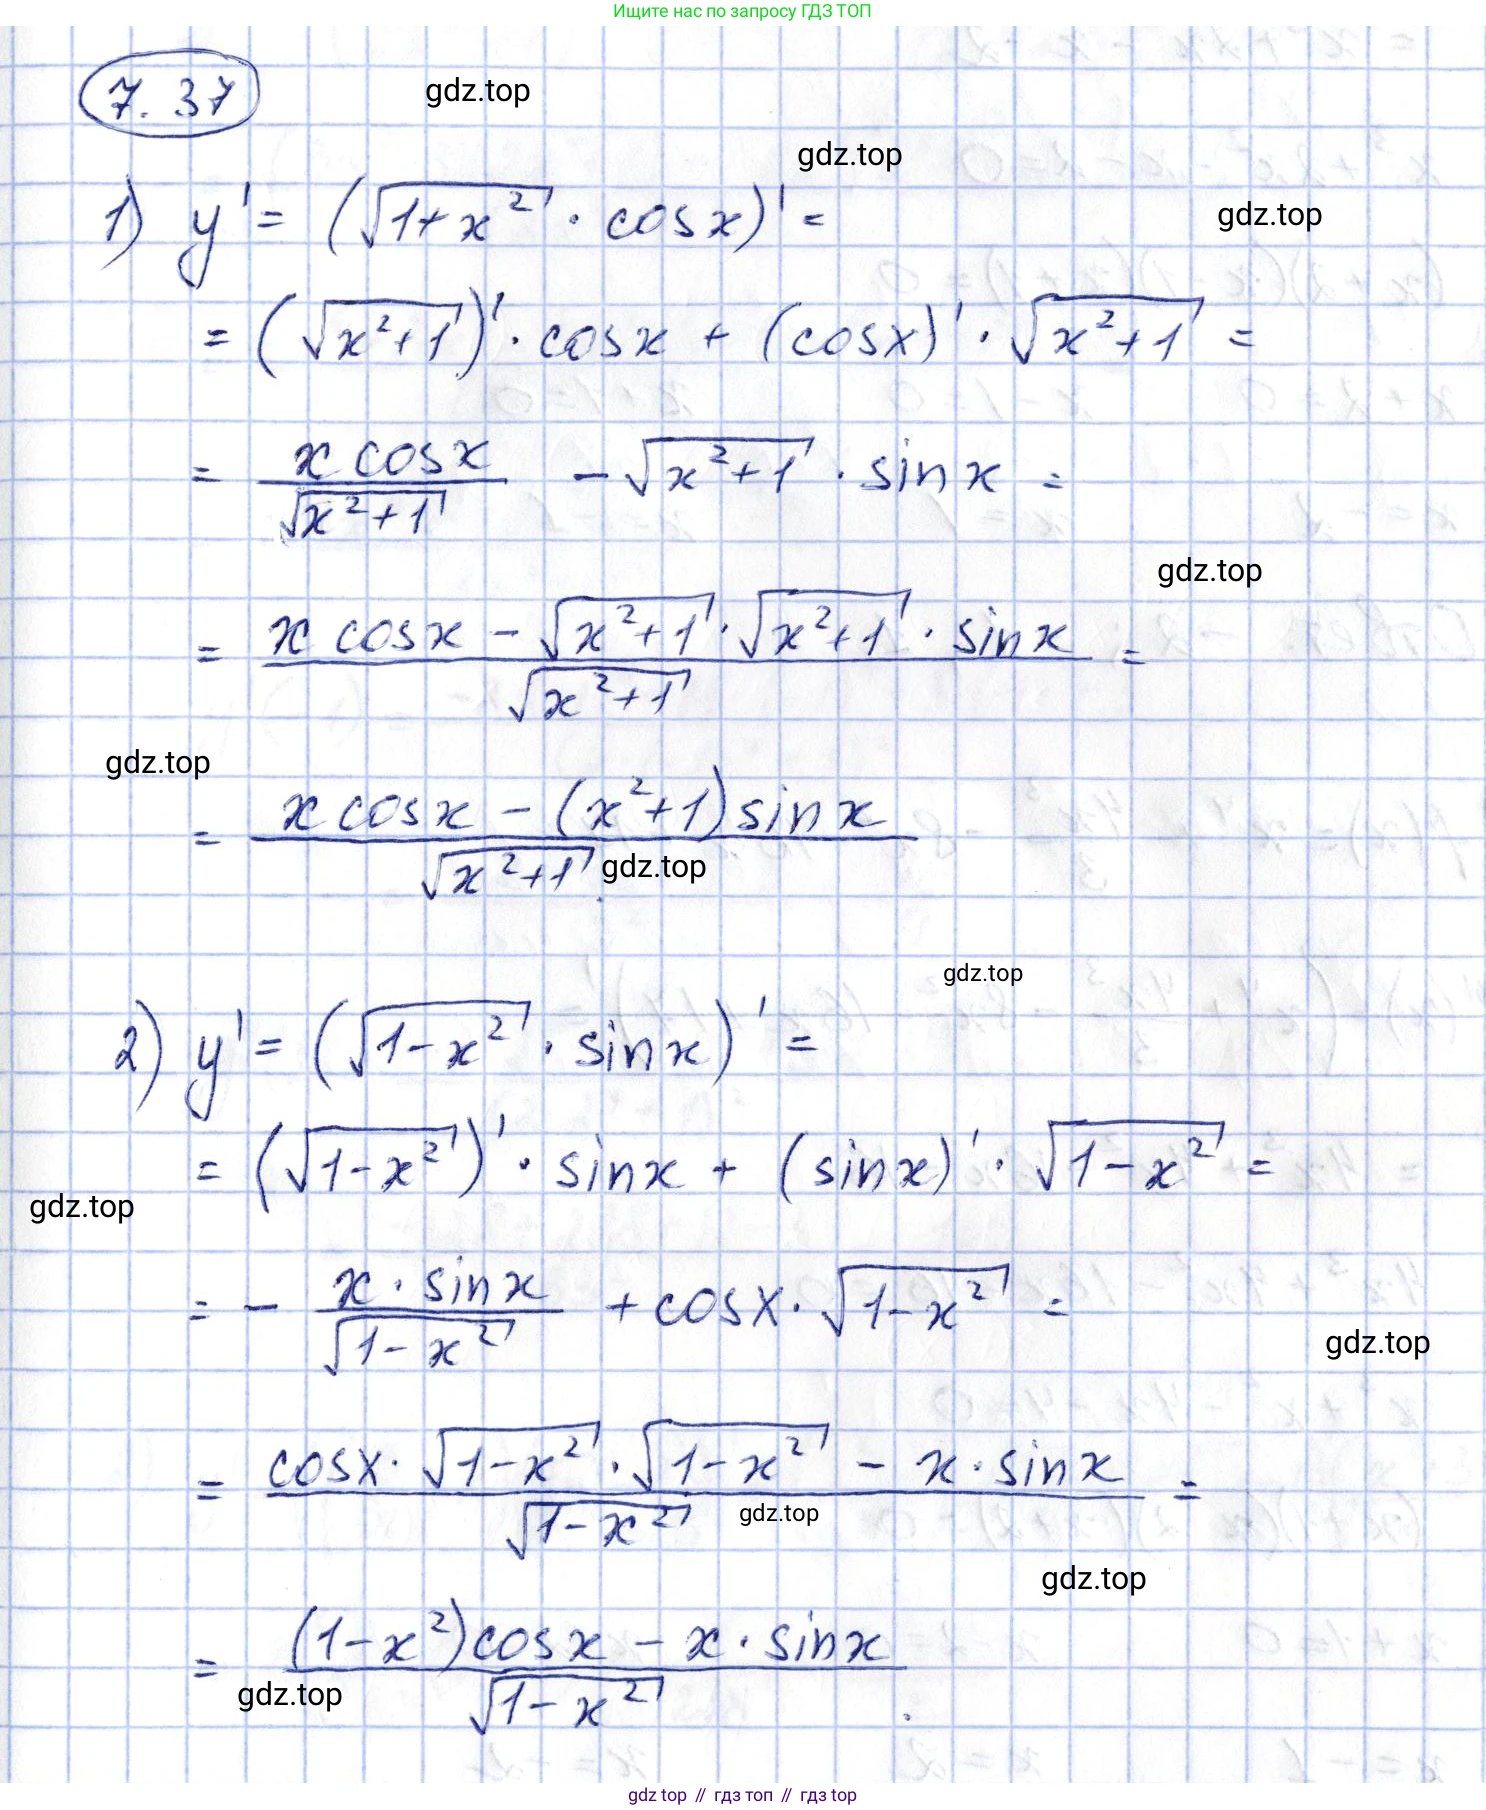 Ищите нас по запросу ГДЗ ТОП
7.37
gdz.top
gdz.top
1) y' = (√(1+x²) · cosx)' =
gdz.top
= (√(x²+1))' · cosx + (cosx)' · √(x²+1) =
= (x cosx)/√(x²+1) - √(x²+1) · sinx =
gdz.top
= (x cosx - √(x²+1) · √(x²+1) · sinx)/√(x²+1) =
gdz.top
= (x cosx - (x²+1) sinx)/√(x²+1).
gdz.top
gdz.top
2) y' = (√(1-x²) · sinx)' =
= (√(1-x²))' · sinx + (sinx)' · √(1-x²) =
gdz.top
= - (x · sinx)/√(1-x²) + cosx · √(1-x²) =
gdz.top
= (cosx · √(1-x²) · √(1-x²) - x · sinx)/√(1-x²) =
gdz.top
gdz.top
= ((1-x²)cosx - x · sinx)/√(1-x²).
gdz.top
gdz top // гдз топ // гдз top